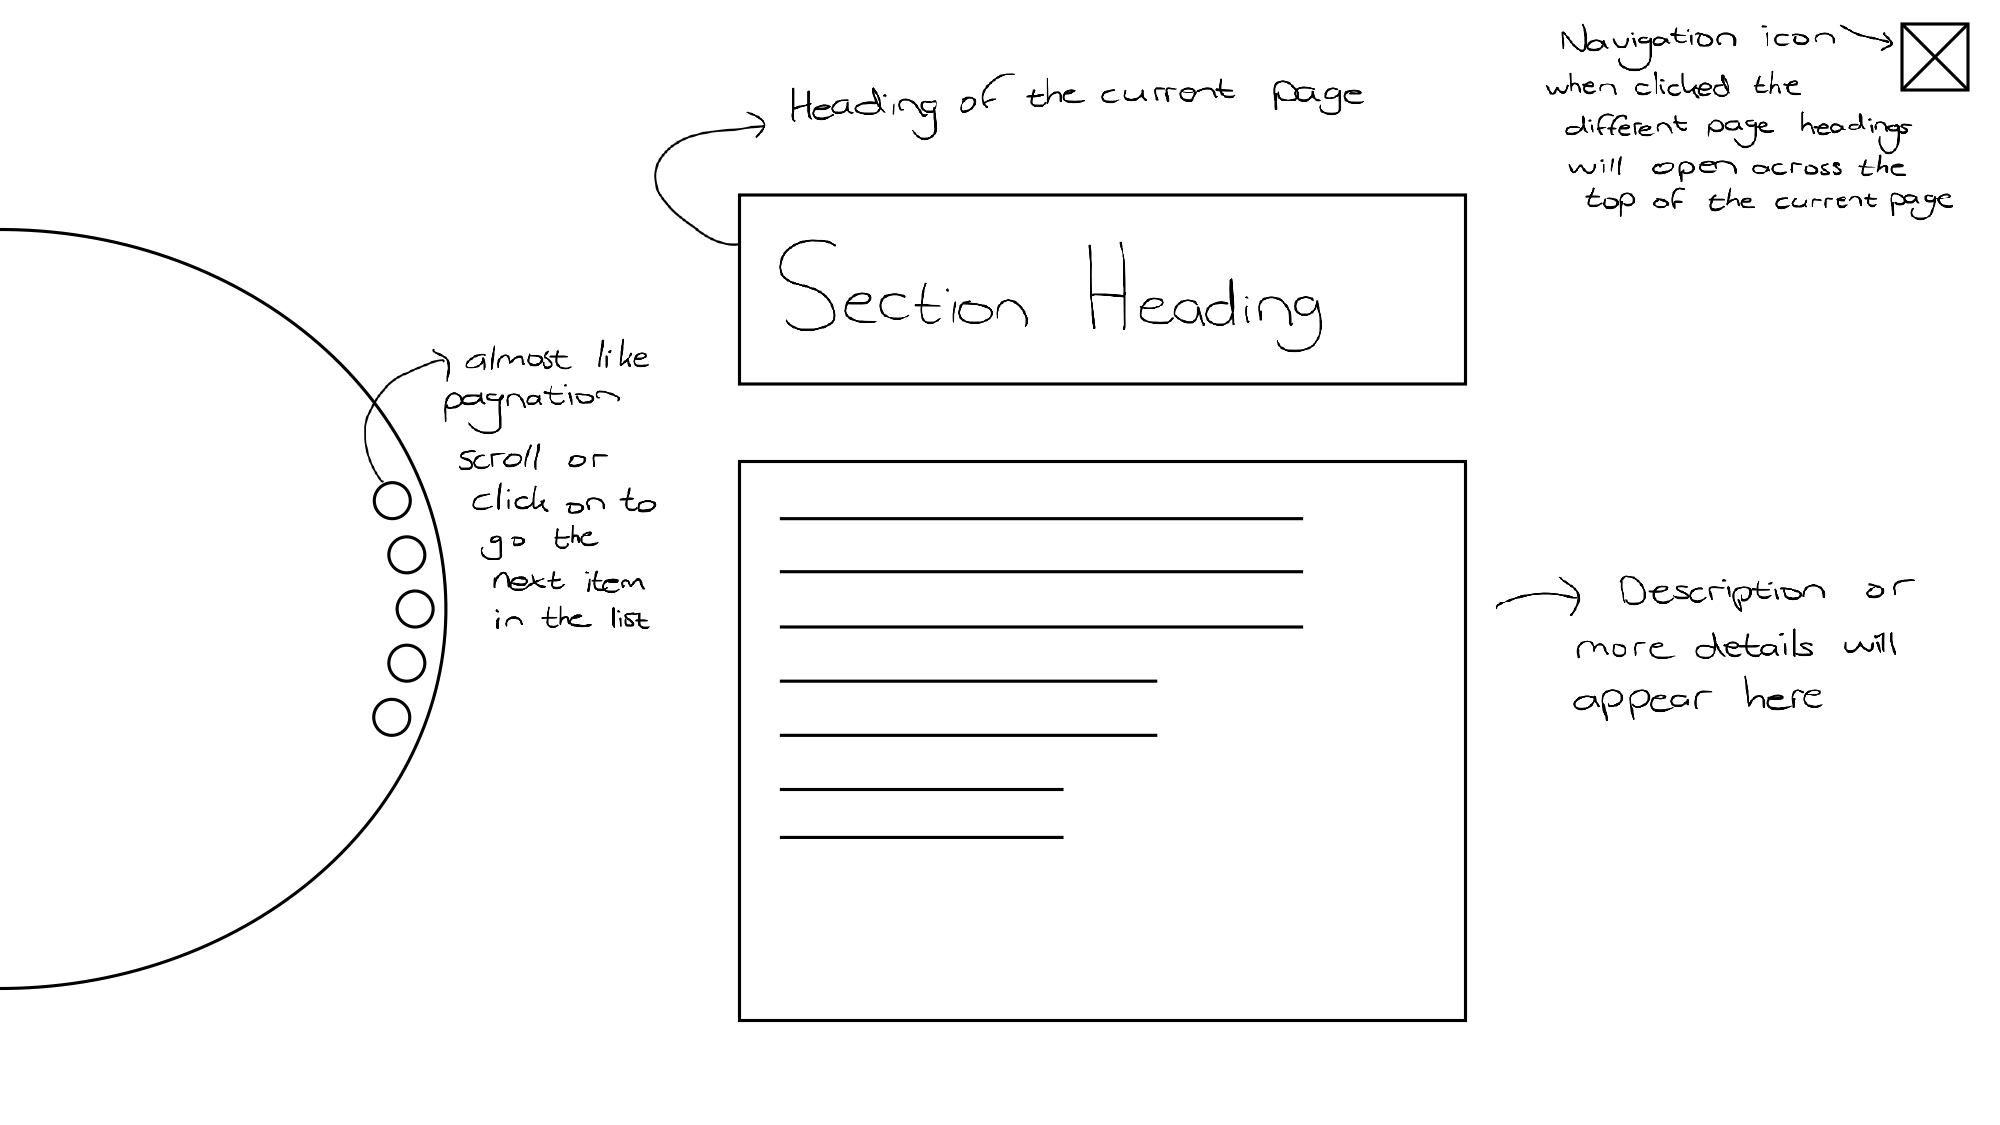 Navigation icon
when clicked the
different page headings
will open across the
top of the current page
Heading of the current page
Section Heading
almost like
pagnation
scroll or
click on to
go the
next item
in the list
Description or
more details will
appear here